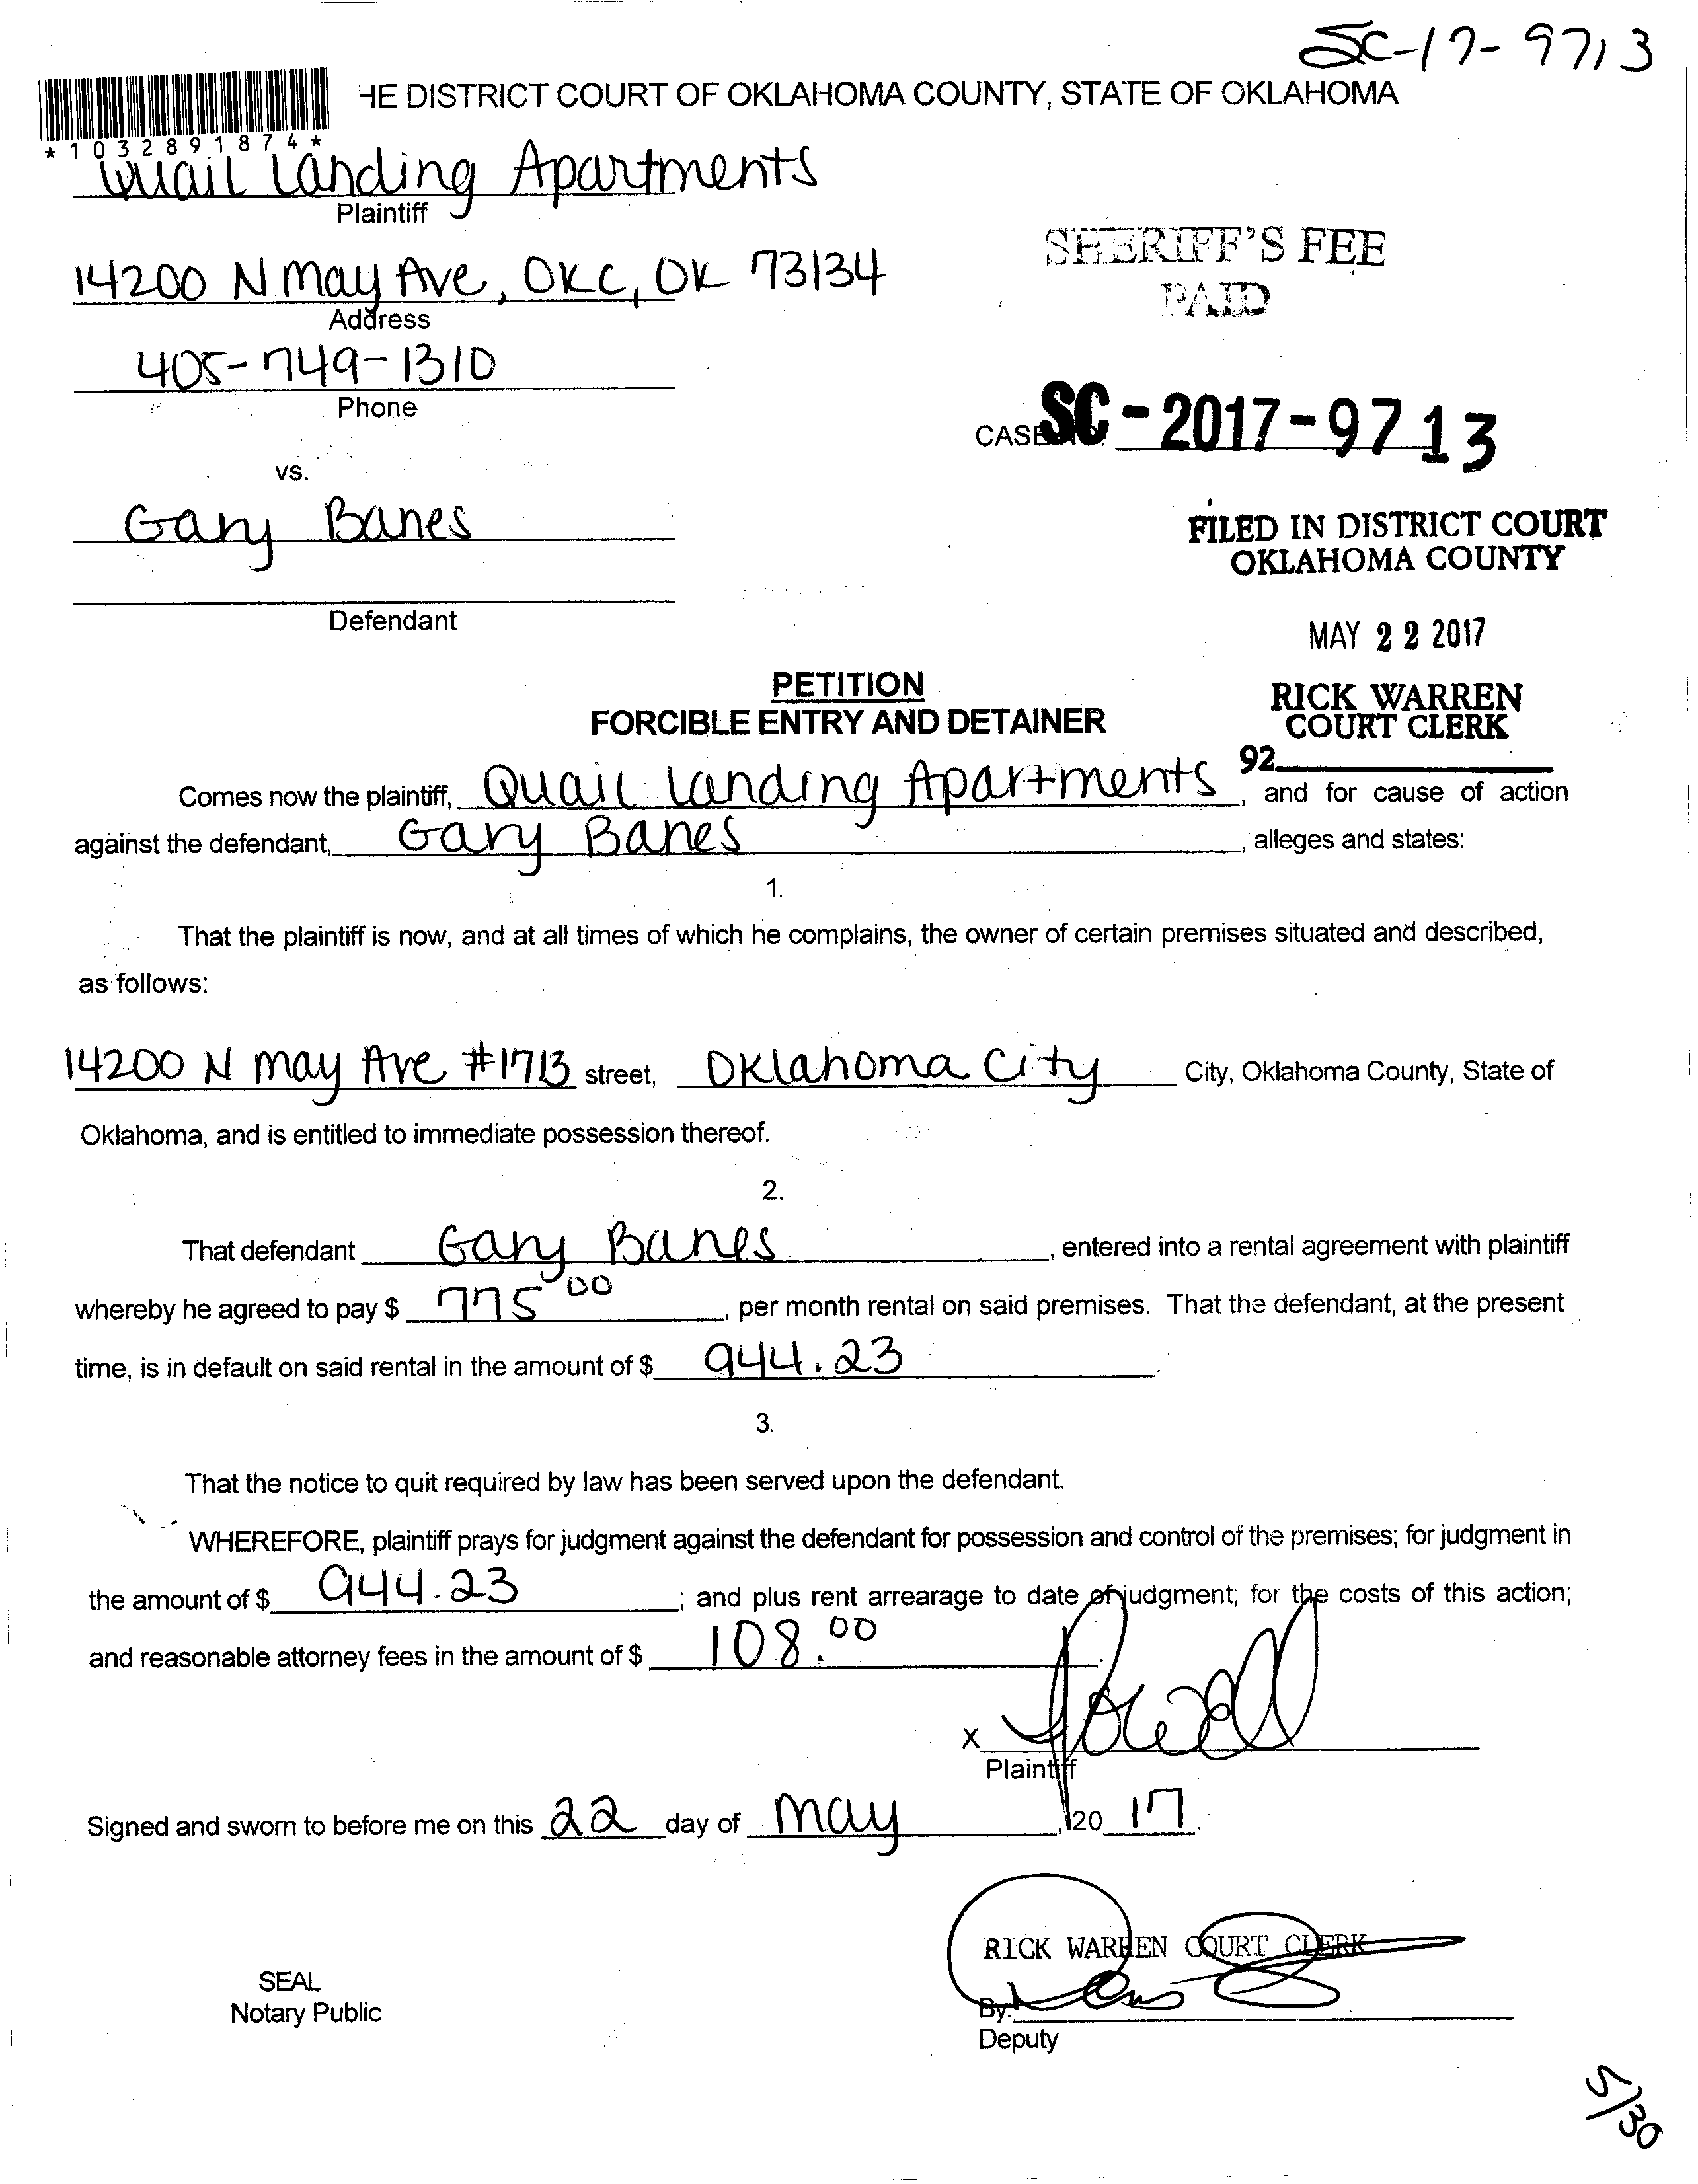 SC-17-9713
HE DISTRICT COURT OF OKLAHOMA COUNTY, STATE OF OKLAHOMA
*1032891874*
Quail Landing Apartments
Plaintiff
14200 N May Ave, OKC, OK 73134
Address
405-749-1310
Phone
SHERIFF'S FEE
PAID
CASE NO. SC-2017-9713
vs.
Gary Banes
Defendant
FILED IN DISTRICT COURT
OKLAHOMA COUNTY
MAY 22 2017
RICK WARREN
COURT CLERK
92
PETITION
FORCIBLE ENTRY AND DETAINER
Comes now the plaintiff, Quail Landing Apartments, and for cause of action
against the defendant, Gary Banes, alleges and states:
1.
That the plaintiff is now, and at all times of which he complains, the owner of certain premises situated and described,
as follows:
14200 N May Ave #1713 street, Oklahoma City City, Oklahoma County, State of
Oklahoma, and is entitled to immediate possession thereof.
2.
That defendant Gary Banes, entered into a rental agreement with plaintiff
whereby he agreed to pay $ 775 00, per month rental on said premises. That the defendant, at the present
time, is in default on said rental in the amount of $ 944.23.
3.
That the notice to quit required by law has been served upon the defendant.
WHEREFORE, plaintiff prays for judgment against the defendant for possession and control of the premises; for judgment in
the amount of $ 944.23; and plus rent arrearage to date of judgment; for the costs of this action;
and reasonable attorney fees in the amount of $ 108.00.
X
Plaintiff
Signed and sworn to before me on this 22 day of May, 20 17.
RICK WARREN COURT CLERK
SEAL
Notary Public
By:
Deputy
5/30